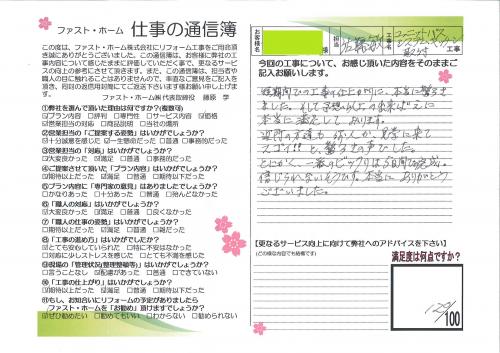 ファスト・ホーム 仕事の通信簿
この度は、ファスト・ホーム株式会社にリフォーム工事をご用命頂き
誠にありがとうございました。この通信簿は、お客様が弊社の工
事内容について感じたままに評価していただく事で、更なるサービ
スの向上の参考にさせて頂きます。また、この通信簿は、担当者や
職人の目に触れることもありますので、率直なご意見をご記入を
頂き、同封の返信用封筒にてご返送下さいます様お願い申し上げ
ます。
ファスト・ホーム㈱ 代表取締役 藤原 学
①弊社を選んで頂いた理由は何ですか?(複数可)
プラン内容 □評判 専門性 サービス内容 価格
営業担当の対応 □商品説明 □当社の場所
②営業担当の「ご提案する姿勢」はいかがでしょうか?
□十分誠意を感じた 一生懸命だった □普通 □事務的だった
③営業担当の「対応」はいかがでしょうか?
大変良かった □満足 □普通 □事務的だった
④ご提案させて頂いた「プラン内容」はいかがでしょうか?
期待以上だった □満足 □普通 □期待以下だった
⑤プラン内容に「専門家の意見」はありましたでしょうか?
かなりあった □十分あった □普通 □殆んどなかった
⑥「職人の対応」はいかがでしょうか?
大変良かった □満足 □普通 □良くなかった
⑦「職人の仕事の姿勢」はいかがでしょうか?
期待以上だった □満足 □普通 □雑だった
⑧「工事の進め方」はいかがでしたか?
とても安心していられた □特に不安はなかった
□対応に少しストレスを感じた □とても不満を感じた
⑨現場の「管理状況(整理整頓等)」はいかがでしょうか?
□言うことなし 配慮があった □普通 □できていない
⑩「工事の仕上がり」はいかがでしょうか?
期待以上だった □満足 □普通 □期待以下だった
⑪もし、お知合いにリフォームの予定がありましたら
ファスト・ホームを「お勧め」頂けますでしょうか?
ぜひ勧めたい □勧めてもいい □わからない □勧められない
お客様名
担当
工事名
工事
今回の工事について、お感じ頂いた内容をそのままご
記入お願いします。
短期間での工事の仕上がりに、本当に驚き
ました。そして予想以上の出来ばえに
本当に満足しております。
近所の方達も 何人か、見学に来て
スゴイ!!と、驚きの声でした。
とにかく、一番のビックリは5日間で完成。
信じられないくらいです。本当に ありがとう
ございました。
【更なるサービス向上に向けて弊社へのアドバイスを下さい】
(どの様な内容でも結構です)
満足度は何点ですか?
120
100